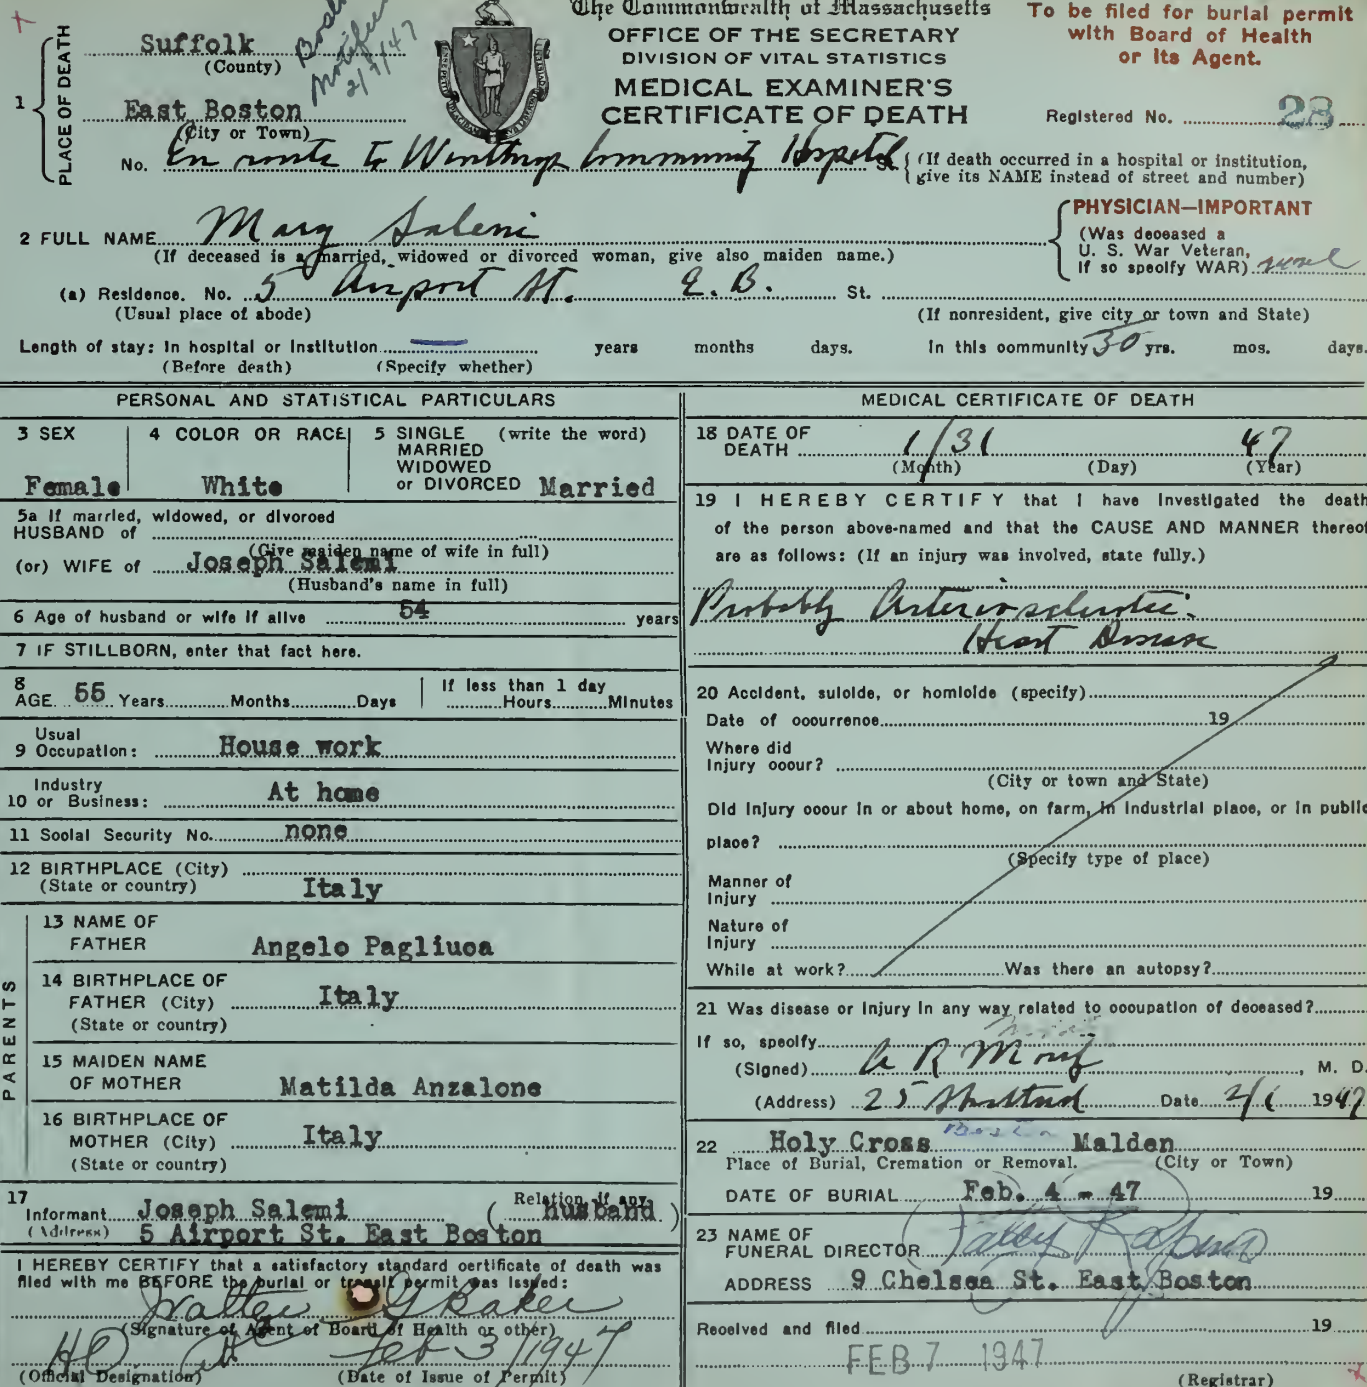 The Commonwealth of Massachusetts
OFFICE OF THE SECRETARY
DIVISION OF VITAL STATISTICS
MEDICAL EXAMINER'S
CERTIFICATE OF DEATH
To be filed for burial permit
with Board of Health
or its Agent.
Registered No. 28
1 PLACE OF DEATH
Suffolk
(County)
notified
2/7/47
East Boston
(City or Town)
No. En route to Winthrop Community Hospital St. (If death occurred in a hospital or institution,
give its NAME instead of street and number)
PHYSICIAN—IMPORTANT
(Was deceased a
U. S. War Veteran,
if so specify WAR)
2 FULL NAME Mary Salemi
(If deceased is a married, widowed or divorced woman, give also maiden name.)
(a) Residence. No. 5 Airport St. E. B. St.
(Usual place of abode) (If nonresident, give city or town and State)
Length of stay: In hospital or Institution years months days. In this community 30 yrs. mos. days.
(Before death) (Specify whether)
PERSONAL AND STATISTICAL PARTICULARS
3 SEX 4 COLOR OR RACE 5 SINGLE (write the word)
MARRIED
WIDOWED
or DIVORCED Married
Female White
5a If married, widowed, or divorced
HUSBAND of
(Give maiden name of wife in full)
(or) WIFE of Joseph Salemi
(Husband's name in full)
6 Age of husband or wife if alive 54 years
7 IF STILLBORN, enter that fact here.
8 AGE 55 Years Months Days If less than 1 day Hours Minutes
9 Usual Occupation: House work
10 Industry or Business: At home
11 Social Security No. none
12 BIRTHPLACE (City)
(State or country) Italy
PARENTS
13 NAME OF
FATHER Angelo Pagliuca
14 BIRTHPLACE OF
FATHER (City) Italy
(State or country)
15 MAIDEN NAME
OF MOTHER Matilda Anzalone
16 BIRTHPLACE OF
MOTHER (City) Italy
(State or country)
17 Informant Joseph Salemi (Relation, if any husband)
(Address) 5 Airport St. East Boston
I HEREBY CERTIFY that a satisfactory standard certificate of death was
filed with me BEFORE the burial or transit permit was issued:
Walter G Baker
(Signature of Agent of Board of Health or other)
HO Feb 3/1947
(Official Designation) (Date of Issue of Permit)
MEDICAL CERTIFICATE OF DEATH
18 DATE OF
DEATH 1/31 47
(Month) (Day) (Year)
19 I HEREBY CERTIFY that I have investigated the death
of the person above-named and that the CAUSE AND MANNER thereof
are as follows: (If an injury was involved, state fully.)
Probably Arteriosclerotic
Heart Disease
20 Accident, suicide, or homicide (specify)
Date of occurrence 19
Where did
Injury occur?
(City or town and State)
Did injury occur in or about home, on farm, in industrial place, or in public
place?
(Specify type of place)
Manner of
Injury
Nature of
Injury
While at work? Was there an autopsy?
21 Was disease or injury in any way related to occupation of deceased?
If so, specify
(Signed) A R M , M. D.
(Address) 25 Date 2/1 1947
22 Holy Cross Boston Malden
Place of Burial, Cremation or Removal. (City or Town)
DATE OF BURIAL Feb. 4 - 47 19
23 NAME OF
FUNERAL DIRECTOR
ADDRESS 9 Chelsea St. East Boston
Received and filed 19
FEB 7 1947
(Registrar)